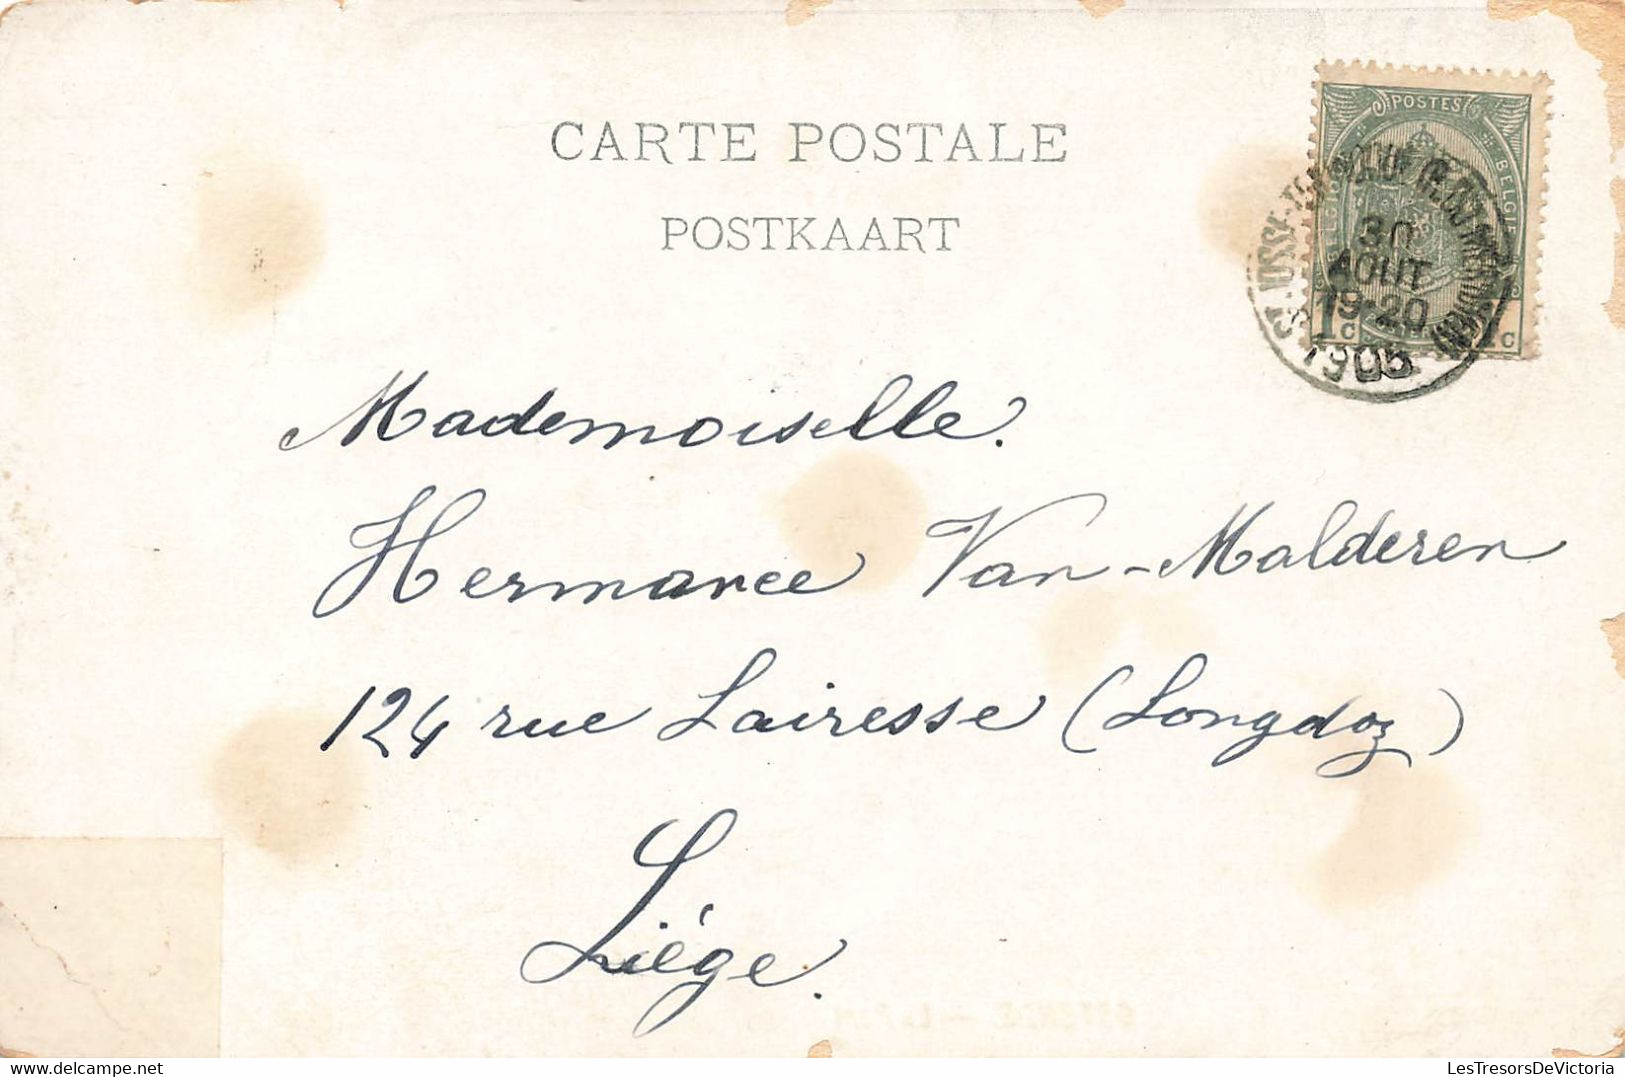 CARTE POSTALE
POSTKAART
POSTES
BELGIE
30
AOUT
19-20
1905
1 c
Mademoiselle.
Hermance Van-Malderen
124 rue Lairesse (Longdoz)
Liége.
LesTresorsDeVictoria